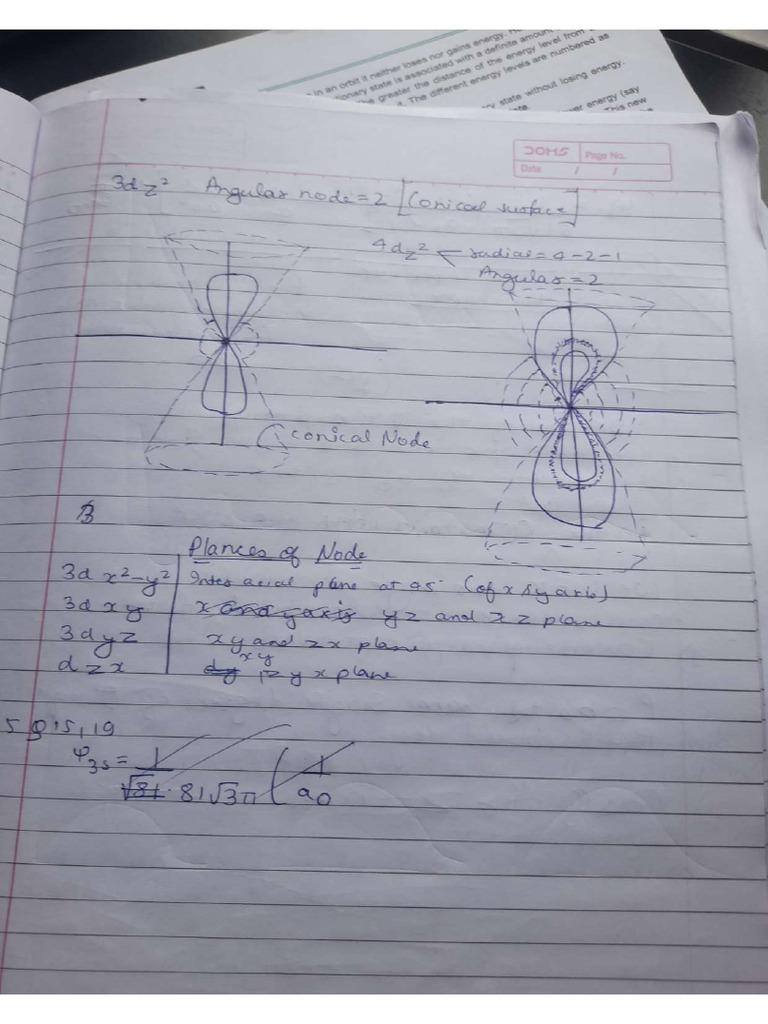 in an orbit it neither loses nor gains energy.
tionary state is associated with a definite amount
the greater the distance of the energy level from
it. The different energy levels are numbered as
ry state without losing energy.
wer energy (say
This new
DOMS Page No.
Date / /
3dz² Angular node = 2 [Conical surface]
4dz² radial = 4-2-1
Angular = 2
Conical Node
B
Plances of Node
3d x²-y² Inter axial plane at 45° (of x & y axis)
3d xy x and y axis yz and xz plane
3d yz xy and zx plane
dzx dy xy yx plane
5 g 15, 19
Ψ3s = 1
√81 · 81√3π ( 1
a0